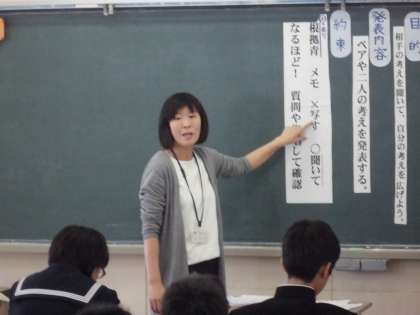 目的
相手の考えを聞いて、自分の考えを広げよう。
発表内容
ペアや二人の考えを発表する。
約束
根拠青 メモ ×写す ○聞いて
なるほど! 質問や して確認